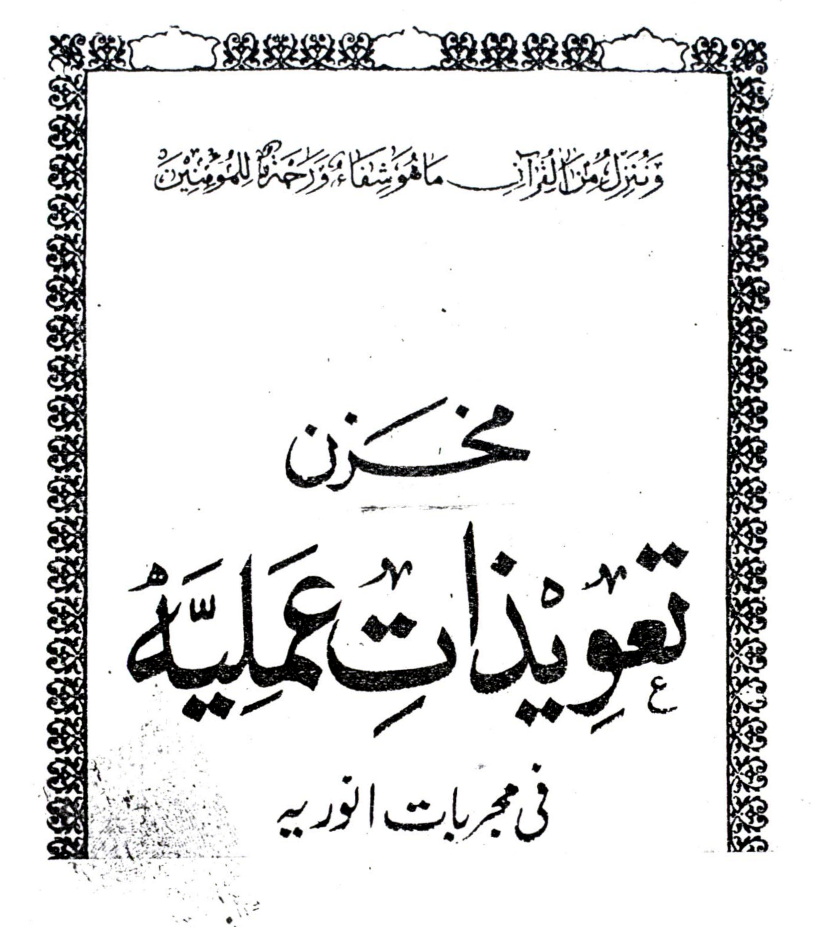 وَنُنَزِّلُ مِنَ الْقُرْآنِ مَا هُوَ شِفَاءٌ وَرَحْمَةٌ لِلْمُؤْمِنِيْنَ
مخزن
تعوِیذاتِ عَمَلِیَّہ
فی مجربات انوریہ